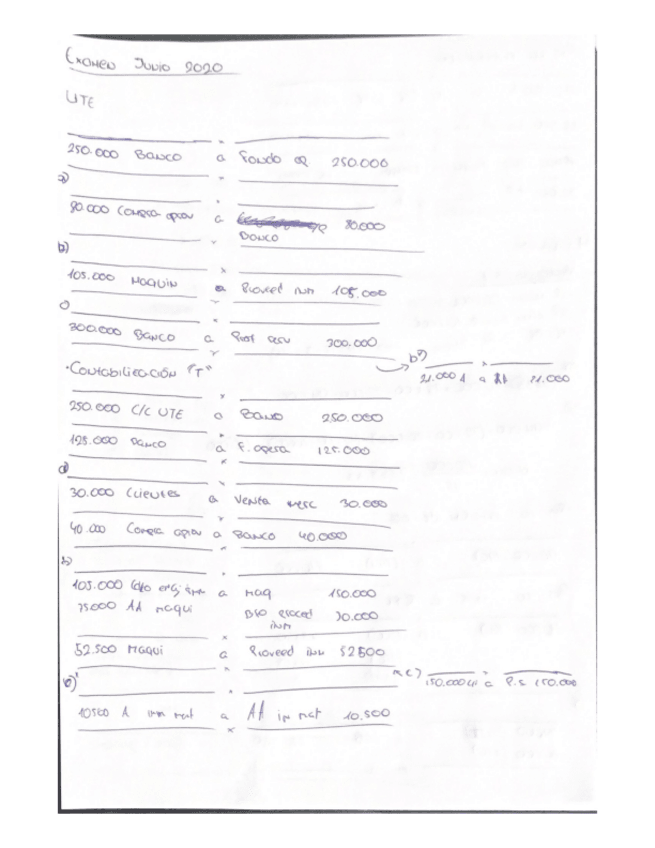 Examen Junio 2020
UTE
250.000 Banco a Fondo op 250.000
a)
80.000 Compra aprov a 80.000
Banco
b)
105.000 Maquin a Proveed inm 105.000
c)
300.000 Banco a Prest serv 300.000
b')
21.000 A a AA 21.000
·Contabilización "T"
250.000 C/C UTE a Banco 250.000
125.000 Banco a F. opera 125.000
a)
30.000 Clientes a Venta merc 30.000
40.000 Compra aprov a Banco 40.000
b)
105.000 Cdto enaj inm a Maq 150.000
75000 AA maqui Bº proced 30.000
inm
52.500 Maqui a Proveed inm 52500
c)
150.000 a P.s 150.000
b)'
10500 A inm mat a AA in mat 10.500